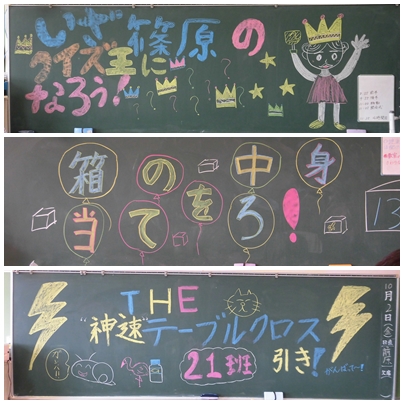 いざ篠原の
クイズ王に
なろう!
箱の中身
当てをろ!
13
THE
"神速"テーブルクロス
21班 引き!
がんばるー!
10月2日(金)